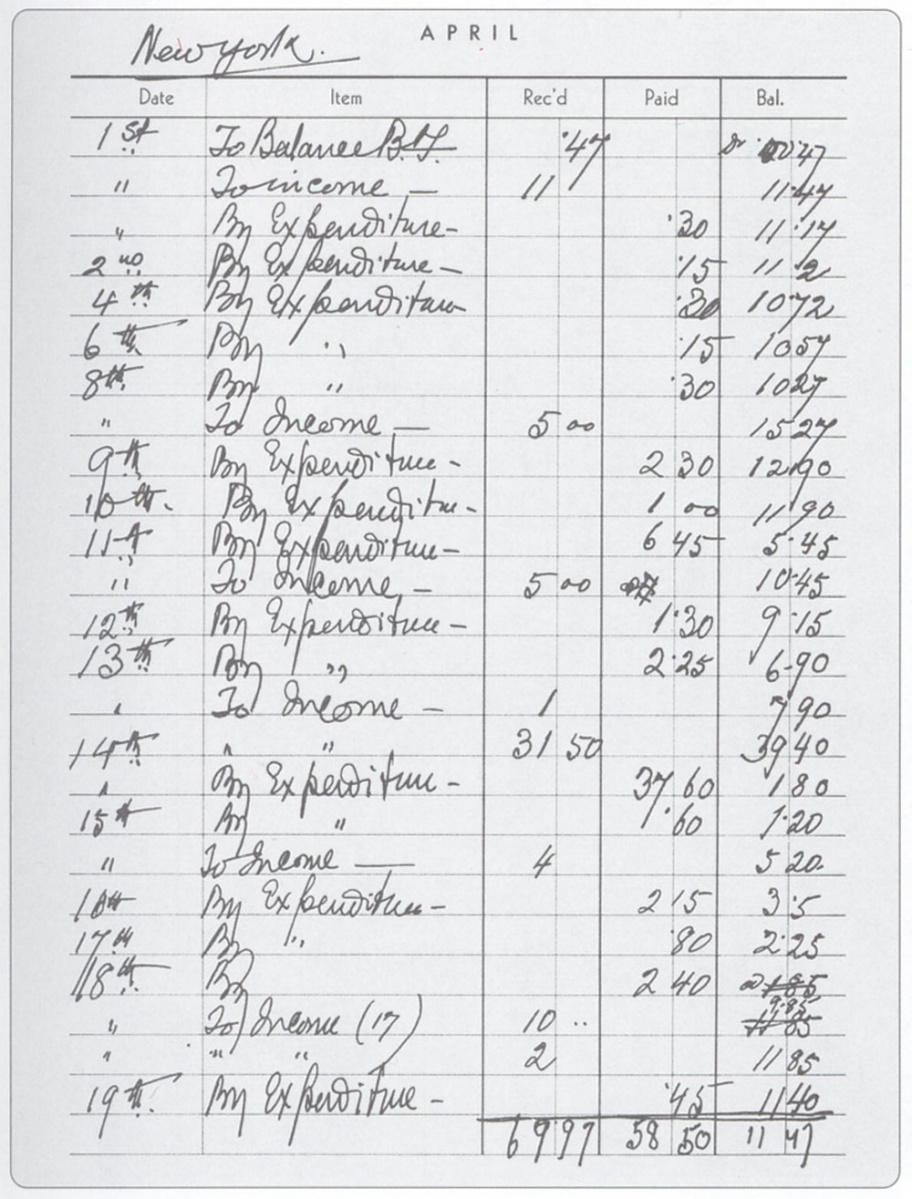 APRIL
New York.
Date Item Rec'd Paid Bal.
1st To Balance B.F. .47 47
" To income — 11 11.47
" By Expenditure - .30 11.17
2nd By Expenditure - .15 11 2
4th By Expenditure .30 10 72
6th By " .15 10 57
8th By " .30 10 27
" To Income — 5 00 15 27
9th By Expenditure - 2 30 12.90
10th. By Expenditure - 1 00 11 90
11th By Expenditure - 6 45 5.45
" To Income, - 5 00 10.45
12th By Expenditure - 1.30 9.15
13th By " 2.25 6.90
" To Income - 1 7 90
14th " " 31 50 39 40
" By Expenditure - 37 60 1 80
15th By " .60 1.20
" To Income — 4 5 20.
16th By Expenditure - 2 15 3.5
17th By " .80 2.25
18th By 2 40
9.85
" To Income (17) 10 ..
" " " 2 11 85
19th. By Expenditure - .45 11 40
69 97 58 50 11 47